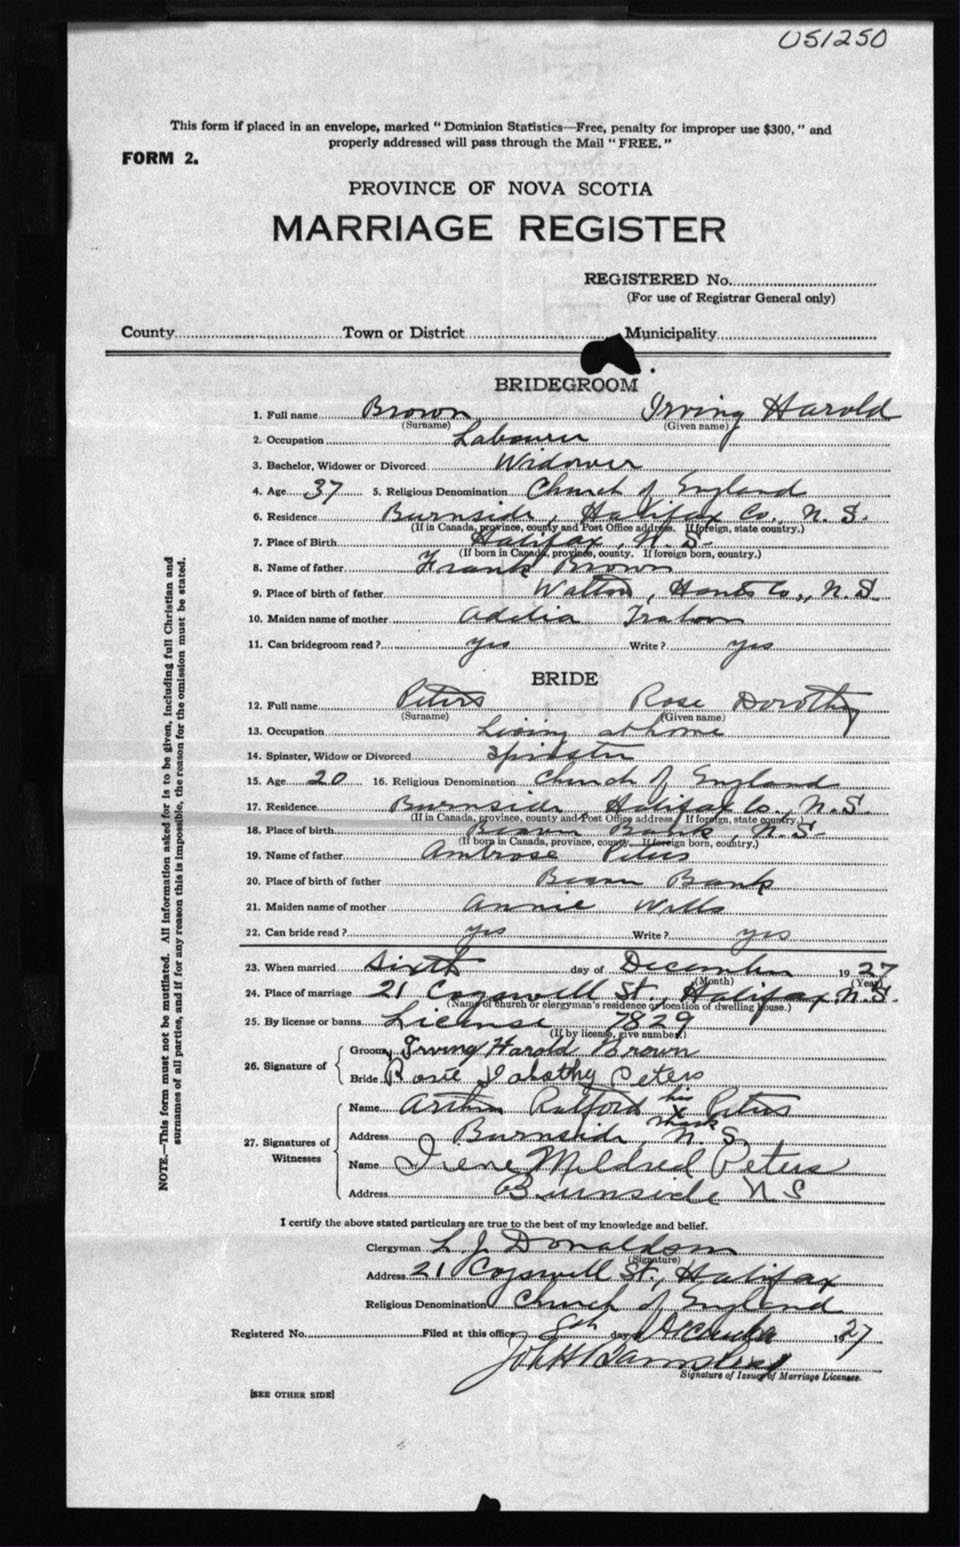 051250
This form if placed in an envelope, marked "Dominion Statistics—Free, penalty for improper use $300," and
properly addressed will pass through the Mail "FREE."
FORM 2.
PROVINCE OF NOVA SCOTIA
MARRIAGE REGISTER
REGISTERED No.
(For use of Registrar General only)
County Town or District Municipality
BRIDEGROOM
1. Full name Brown Irving Harold
(Surname) (Given name)
2. Occupation Labourer
3. Bachelor, Widower or Divorced Widower
4. Age 37 5. Religious Denomination Church of England
6. Residence Burnside, Halifax Co., N.S.
(If in Canada, province, county and Post Office address. If foreign, state country.)
7. Place of Birth Halifax, N.S.
(If born in Canada, province, county. If foreign born, country.)
8. Name of father Frank Brown
9. Place of birth of father Walton, Hants Co., N.S.
10. Maiden name of mother Adelia
11. Can bridegroom read? yes Write? yes
BRIDE
12. Full name Peters Rose Dorothy
(Surname) (Given name)
13. Occupation Living at home
14. Spinster, Widow or Divorced Spinster
15. Age 20 16. Religious Denomination Church of England
17. Residence Burnside Halifax Co., N.S.
(If in Canada, province, county and Post Office address. If foreign, state country.)
18. Place of birth Beaver Bank, N.S.
(If born in Canada, province, county. If foreign born, country.)
19. Name of father Ambrose Peters
20. Place of birth of father Beaver Bank
21. Maiden name of mother Annie Wells
22. Can bride read? yes Write? yes
23. When married Sixth day of December 1927
(Month) (Year)
24. Place of marriage 21 Cogswell St., Halifax, N.S.
(Name of church or clergyman's residence or location of dwelling house.)
25. By license or banns License 7829
(If by license, give number.)
26. Signature of Groom Irving Harold Brown
Bride Rosie Dalothy Peters
27. Signatures of Witnesses
Name Arthur Ralford his X mark Peters
Address Burnside, N.S.
Name Irene Mildred Peters
Address Burnside N S
I certify the above stated particulars are true to the best of my knowledge and belief.
Clergyman L. J. Donaldson
(Signature)
Address 21 Cogswell St., Halifax
Religious Denomination Church of England
Registered No. Filed at this office 8th day December 1927
Signature of Issuer of Marriage Licenses.
[SEE OTHER SIDE]
NOTE.—This form must not be mutilated. All information asked for is to be given, including full Christian and
surnames of all parties, and if for any reason this is impossible, the reason for the omission must be stated.